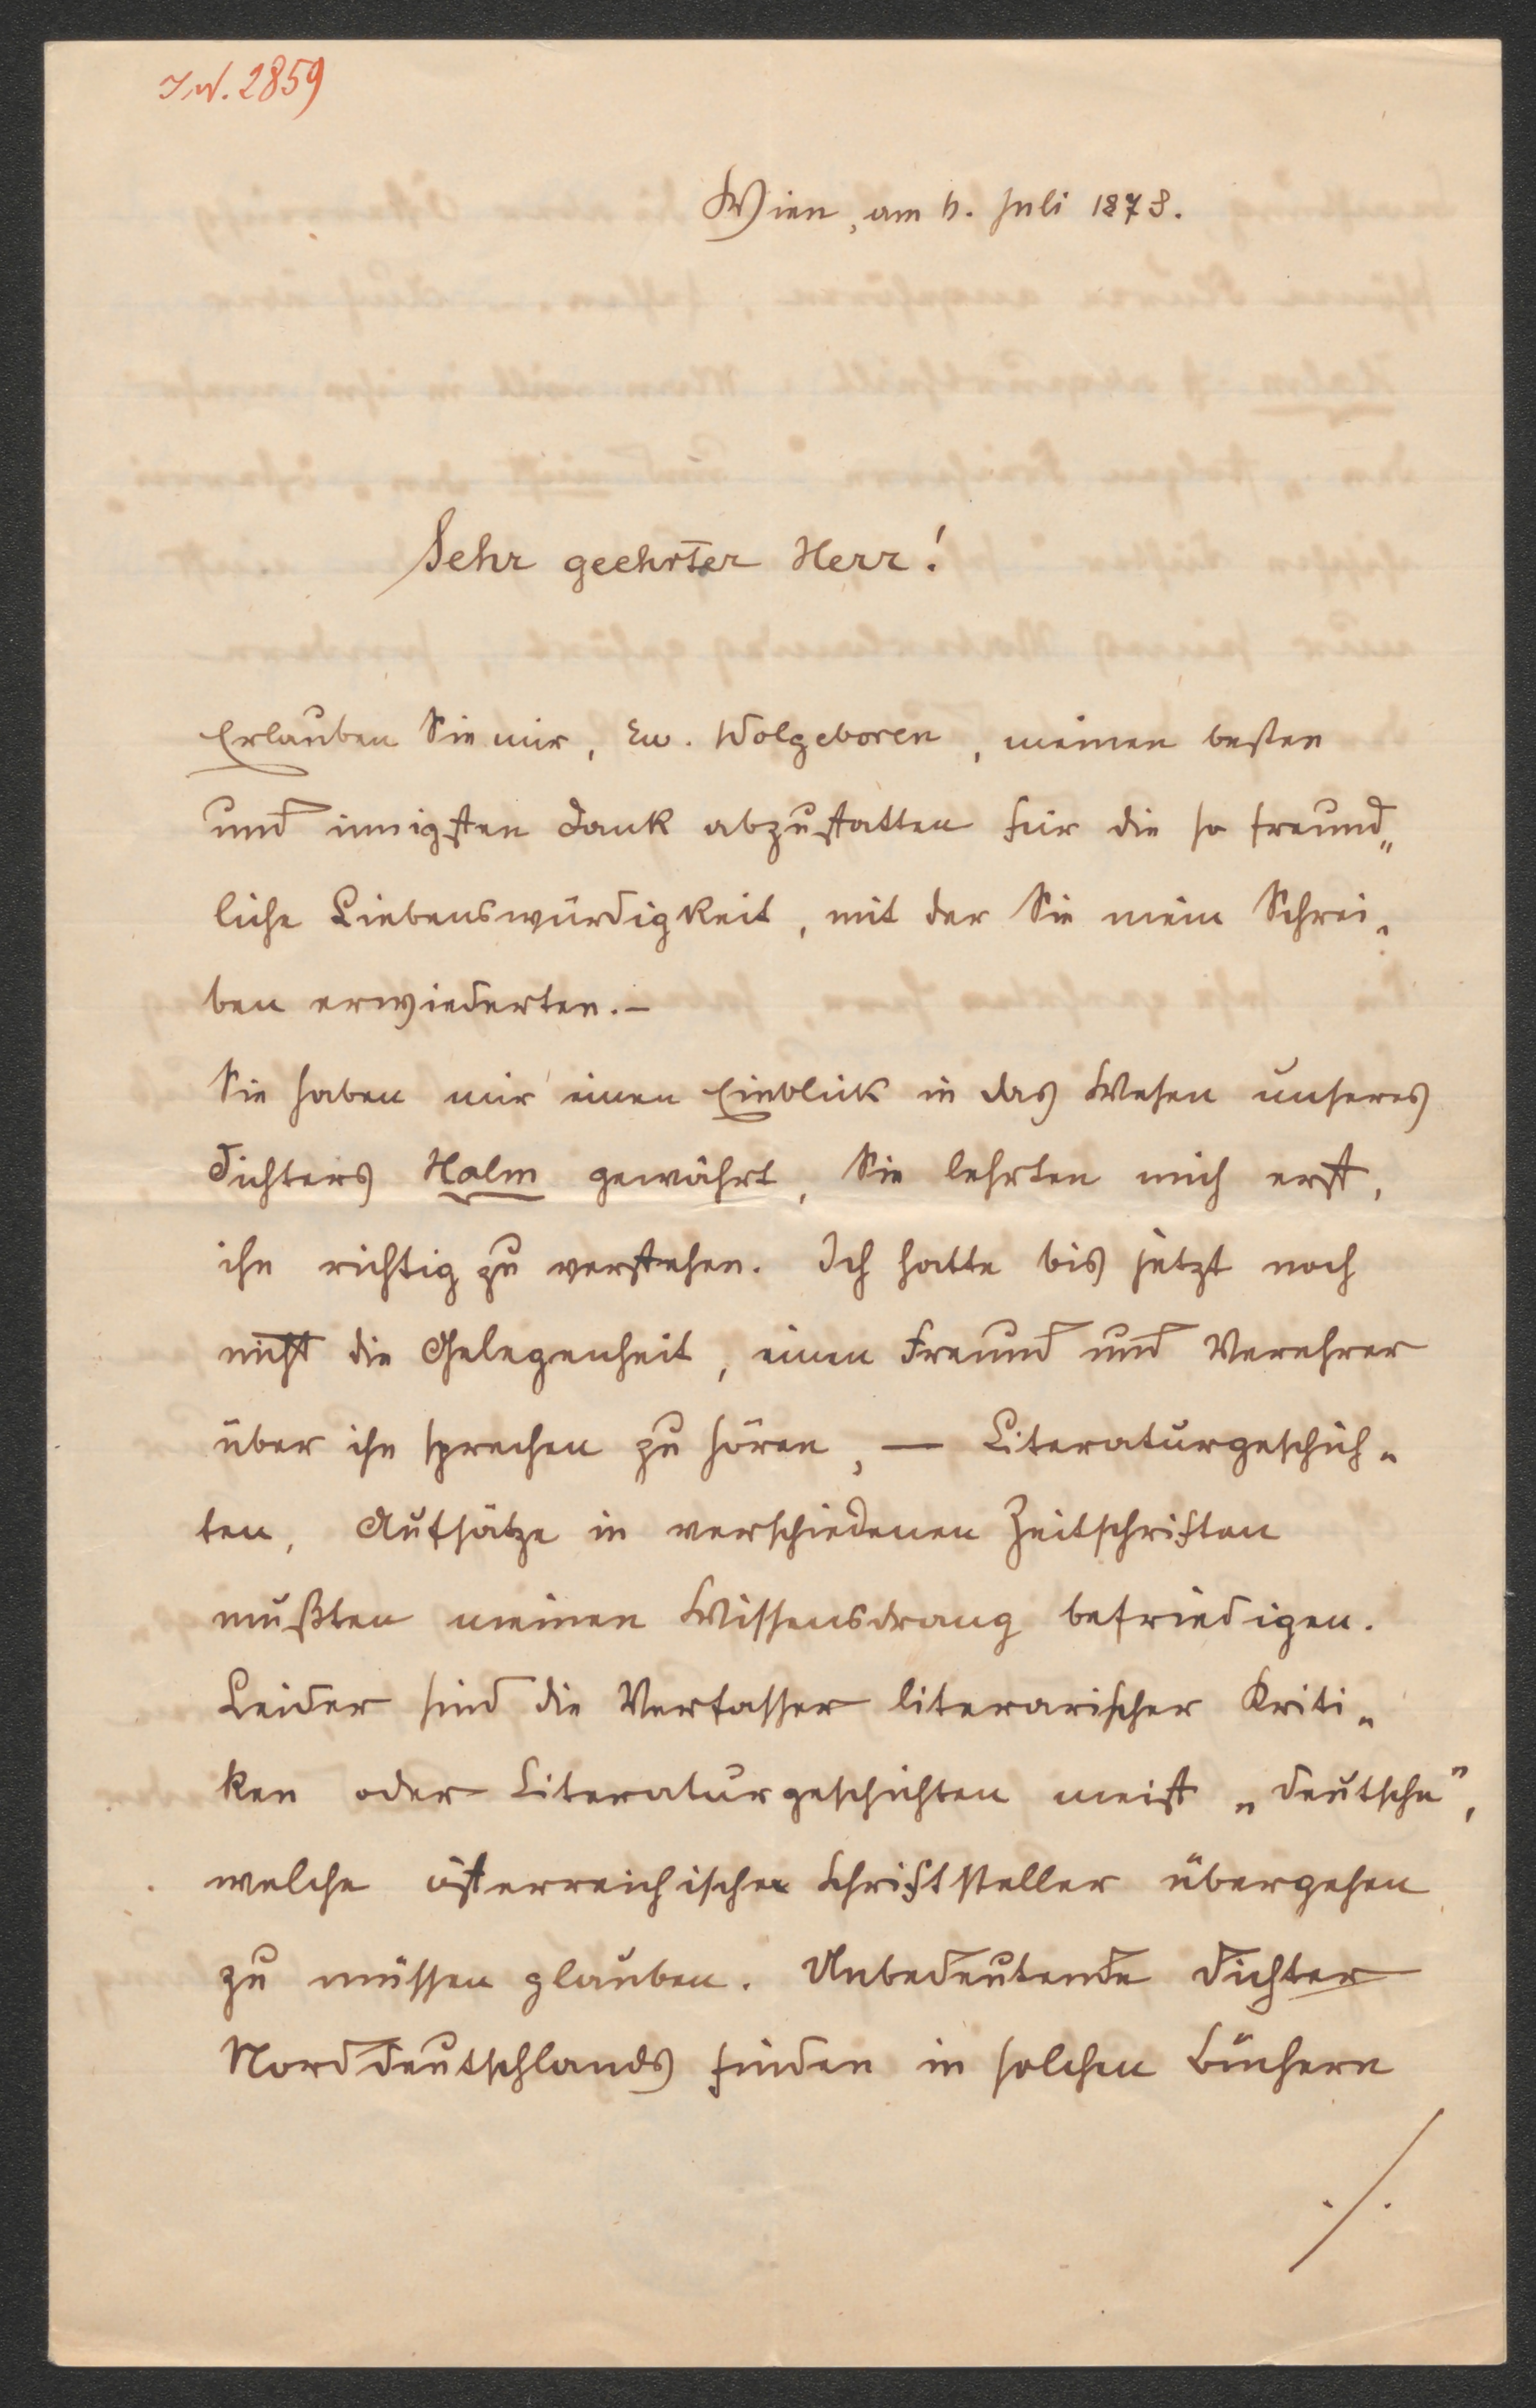 I.N. 2859
Wien, am 6. Juli 1878.
Sehr geehrter Herr!
Erlauben Sie mir, Ew. Wolgeboren, meinen besten
und innigsten Dank abzustatten für die so freund„
liche Liebenswürdigkeit, mit der Sie mein Schrei„
ben erwiederten.–
Sie haben mir einen Einblick in das Wesen unseres
Dichters Halm gewährt, Sie lehrten mich erst,
ihn richtig zu verstehen. Ich hatte bis jetzt noch
nicht die Gelegenheit, einen Freund und Verehrer
über ihn sprechen zu hören, — Literaturgeschich„
ten, Aufsätze in verschiedenen Zeitschriften
mußten meinen Wissensdrang befriedigen.
Leider sind die Verfasser literarischer Kriti„
ken oder Literaturgeschichten meist „Deutsche”,
welche österreichische Schriftsteller übergehen
zu müssen glauben. Unbedeutende Dichter
Norddeutschlands finden in solchen Büchern
./.